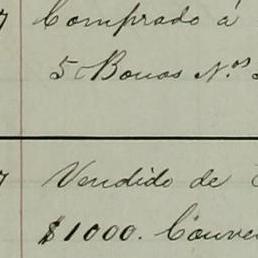 7 Comprado á
5 Bonos N.os
7 Vendido de
$1000. Conve